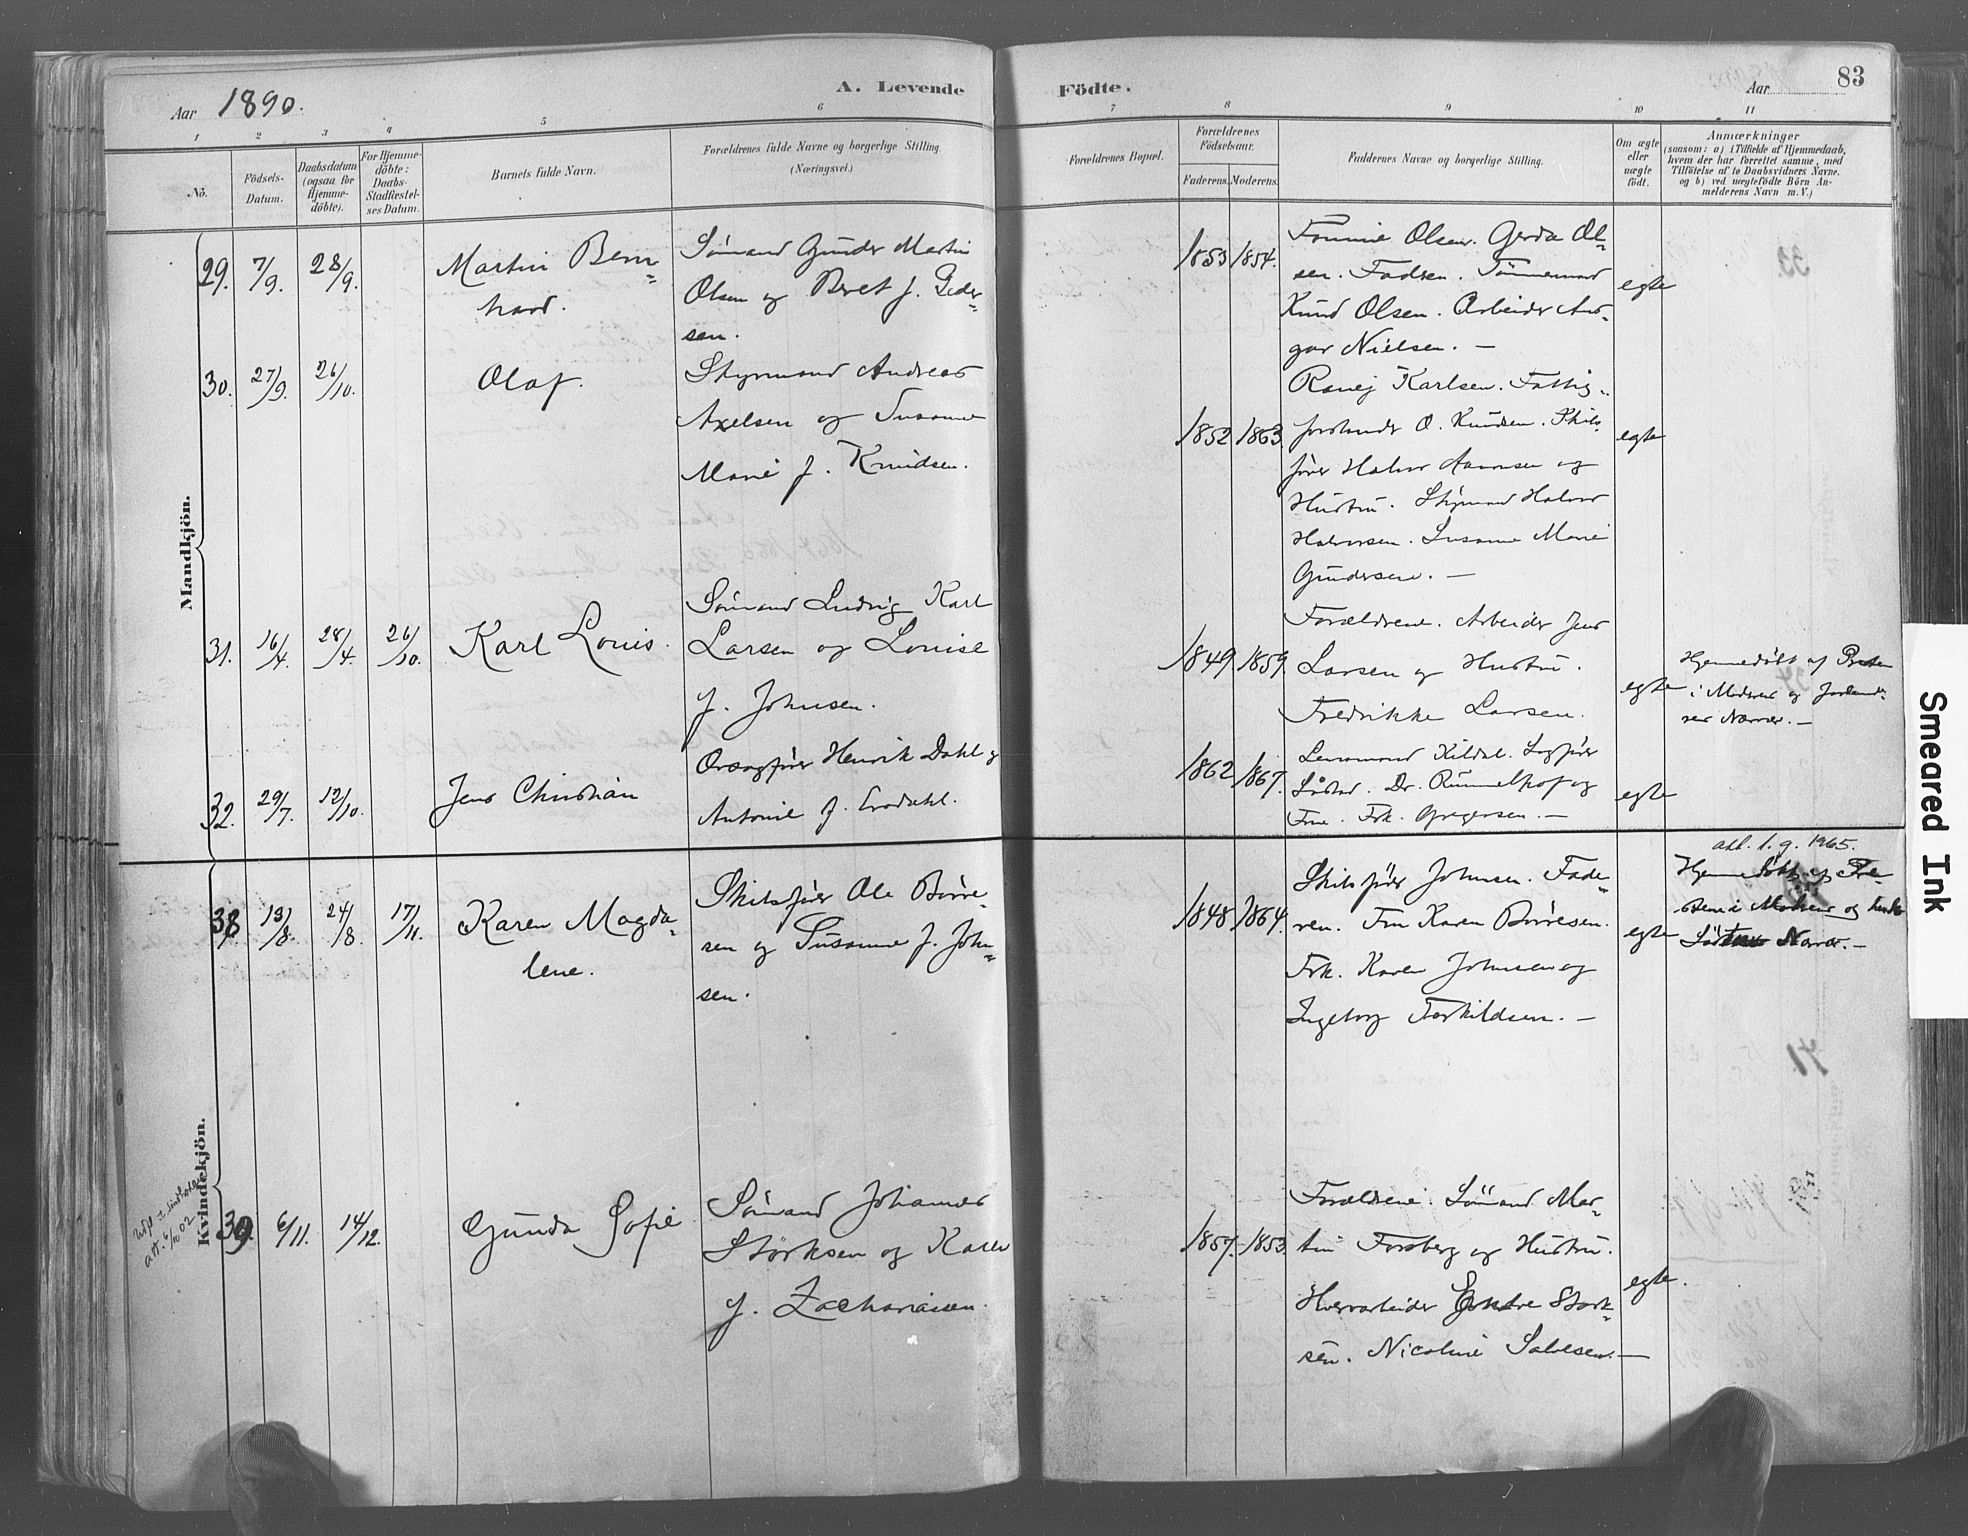 Aar 1890.
A. Levende
Födte.
Aar
83
1 2 3 4 5 6 7 8 9 10 11
Nò.
Födsels-
Datum.
Daabsdatum
(ogsaa for
Hjemme-
döbte).
For Hjemme-
döbte:
Daabs-
Stadfæstel-
ses Datum.
Barnets fulde Navn.
Forældrenes fulde Navne og borgerlige Stilling.
(Næringsvei.)
Forældrenes Bopæl.
Forældrenes
Födselsaar.
Faderens.
Moderens.
Faddernes Navne og borgerlige Stilling.
Om ægte
eller
uægte
födt.
Anmærkninger
(saasom: a) i Tilfælde af Hjemmedaab,
hvem der har forrettet samme, med
Tilföielse af to Daabsvidners Navne.
og b) ved uægtefödte Börn An-
melderens Navn m. V.)
Mandkjön.
29. 7/9. 28/9.
Martin Bern=
hard.
Sømand Gunder Martin
Olsen og Beret f. Peder=
sen.
1853 1854.
Olsen. Gerda Ol=
sen. Fadsen. Tømmermand
Knud Olsen. Arbeider Ans=
gar Nielsen. —
egte
30. 27/9. 26/10.
Olaf.
Styrmand Andreas
Axelsen og Susanne
Marie f. Knudsen.
1852 1863.
Karlsen. Fattig=
forstander O. Knudsen. Skibs=
fører Halvor Aanonsen og
Hustru. Styrmand Halvor
Halvorsen. Susanne Marie
Gundersen. —
egte
31. 16/4. 28/4. 26/10.
Karl Louis.
Sømand Ludvig Karl
Larsen og Louise
f. Johnsen.
1849 1859.
Forældrene. Arbeider Jens
Larsen og Hustru.
Fredrikke Larsen.
egte
Hjemmedøbt af Præsten
i Moderens og
Nærvær. —
32. 29/7. 12/10.
Jens Christian
Oversagfører Henrik Dahl og
Antonie f.
1862 1867.
Lensmand Kildal. Sagfører
Dr. Rummelhof og
Frue. Frk. Gregersen. —
egte
Kvindekjön.
38. 13/8. 24/8. 17/11.
Karen Magda=
lene.
Skibsfører Ole Børre=
sen og Susanne f. John=
sen.
1848 1864.
Skibsfører Johnsen. Fade=
ren. Fru Karen Børresen.
Frk. Karen Johnsen og
Ingeborg Torkildsen. —
egte
att. 1.9.1965.
Hjemmedøbt af Præ=
sten i Moderens og
Nærvær. —
att. 6/10 02
39. 6/11. 14/12.
Gunda Sofie
Sømand Johannes
Størksen og Karen
f. Zachariasen.
1857. 1853.
Forældrene. Sømand Mar=
tin Forsberg og Hustru.
Endre Størk=
sen. Nicoline Salvesen. —
egte.
Smeared Ink